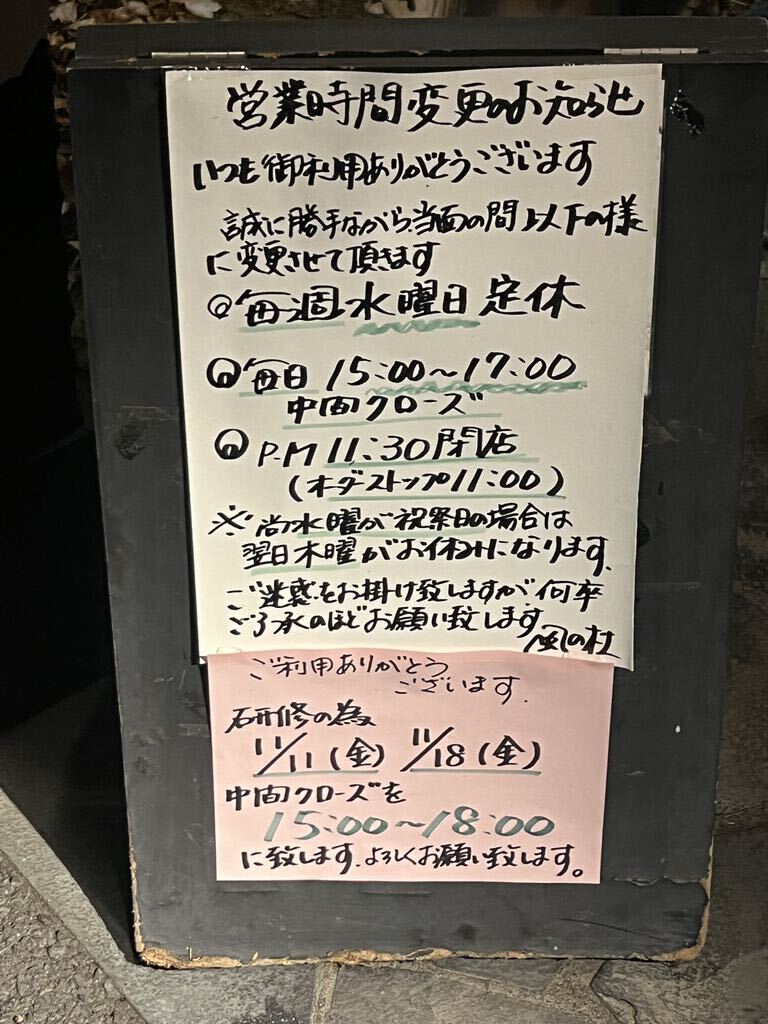 営業時間変更のお知らせ
いつも御利用ありがとうございます
誠に勝手ながら、当面の間以下の様
に変更させて頂きます
◎毎週水曜日定休
◎毎日15:00〜17:00
中間クローズ
◎P.M11:30閉店
(オーダーストップ11:00)
※尚水曜が祝祭日の場合は
翌日木曜がお休みになります。
ご迷惑をお掛け致しますが何卒
ご了承のほどお願い致します。
風の杜
ご利用ありがとう
ございます。
研修の為
11/11(金) 11/18(金)
中間クローズを
15:00〜18:00
に致します。よろしくお願い致します。